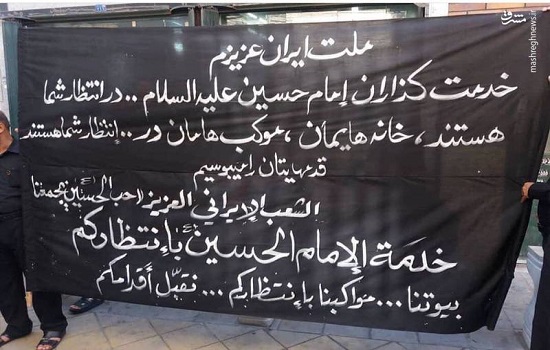 ملت ایران عزیزم
خدمت کذاران إمام حسین علیه السلام .. در انتظار شما
هستند ، خانه هایمان ، موکب هامان در .. إنتظار شما هستند
قدمهایتان رامیبوسیم
الشعب الإيراني العزيز (حب الحسين يجمعنا
خدمة الإمام الحسين بإنتظاركم
بيوتنا ... مواكبنا بإنتظاركم ... نقبّل أقدامكم
مشرق
mashreghnews.ir